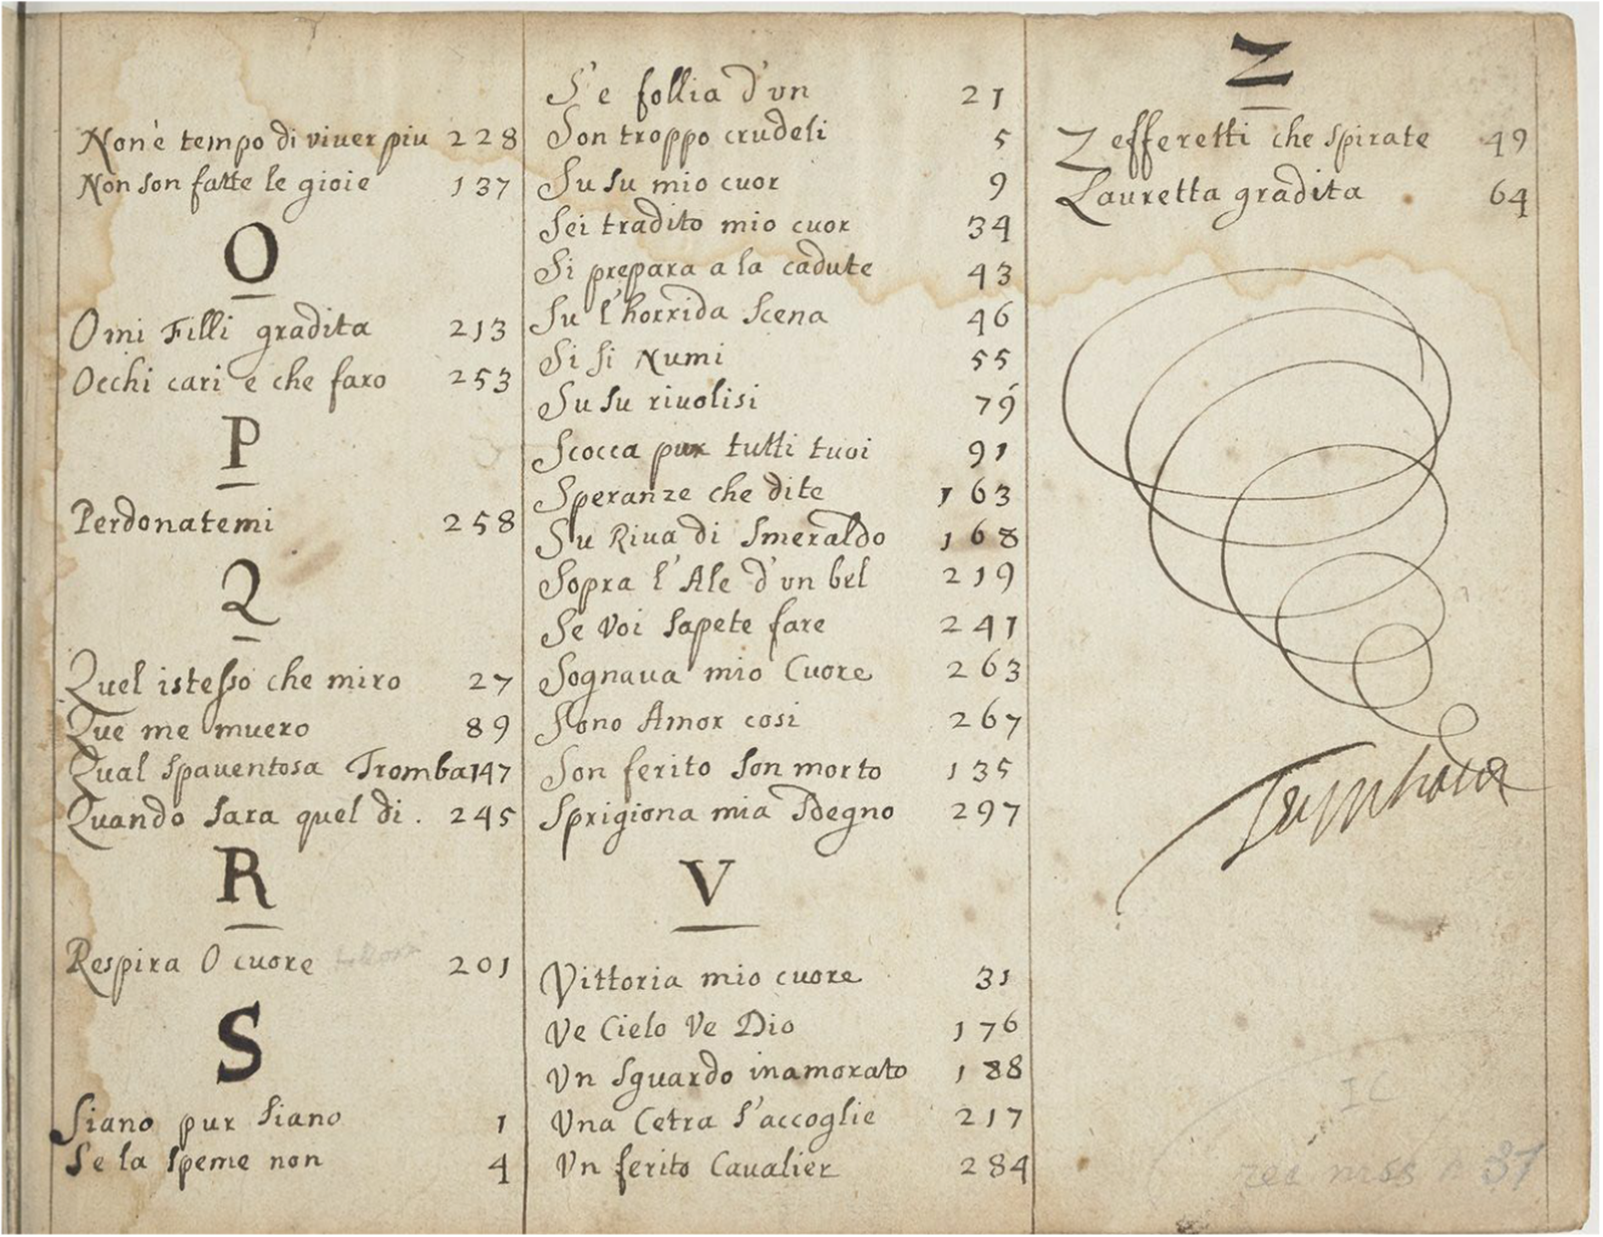 Non è tempo di viver piu 228
Non son fatte le gioie 137
O
O mi Filli gradita 213
Occhi cari e che faro 253
P
Perdonatemi 258
Q
Quel istesso che miro 27
Que me muero 89
Qual spauentosa Tromba 147
Quando sara quel di . 245
R
Respira O cuore 201
S
Siano pur siano 1
Se la speme non 4
S'e follia d'vn 21
Son troppo crudeli 5
Su su mio cuor 9
Sei tradito mio cuor 34
Si prepara a la cadute 43
Su l'horrida scena 46
Si si Numi 55
Su su riuolisi 79
Scocca pur tutti tuoi 91
Speranze che dite 163
Su Riua di Smeraldo 168
Sopra l'Ale d'vn bel 219
Se voi sapete fare 241
Sognaua mio Cuore 263
Sono Amor cosi 267
Son ferito son morto 135
Sprigiona mia Sdegno 297
V
Vittoria mio cuore 31
Ve Cielo Ve Dio 176
Vn sguardo inamorato 188
Vna Cetra s'accoglie 217
Vn ferito Caualier 284
Z
Zefferetti che spirate 49
Lauretta gradita 64
IC
res mss 31